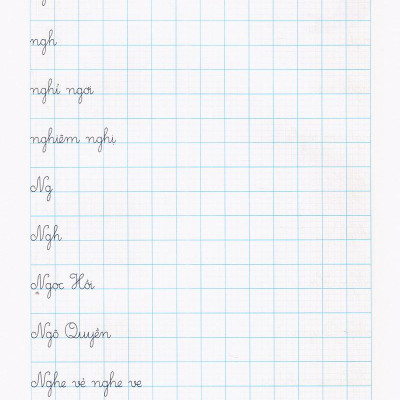 ngh
nghỉ ngơi
nghiêm nghị
Ng
Ngh
Ngọc Hồi
Ngô Quyền
Nghe vẻ nghe ve